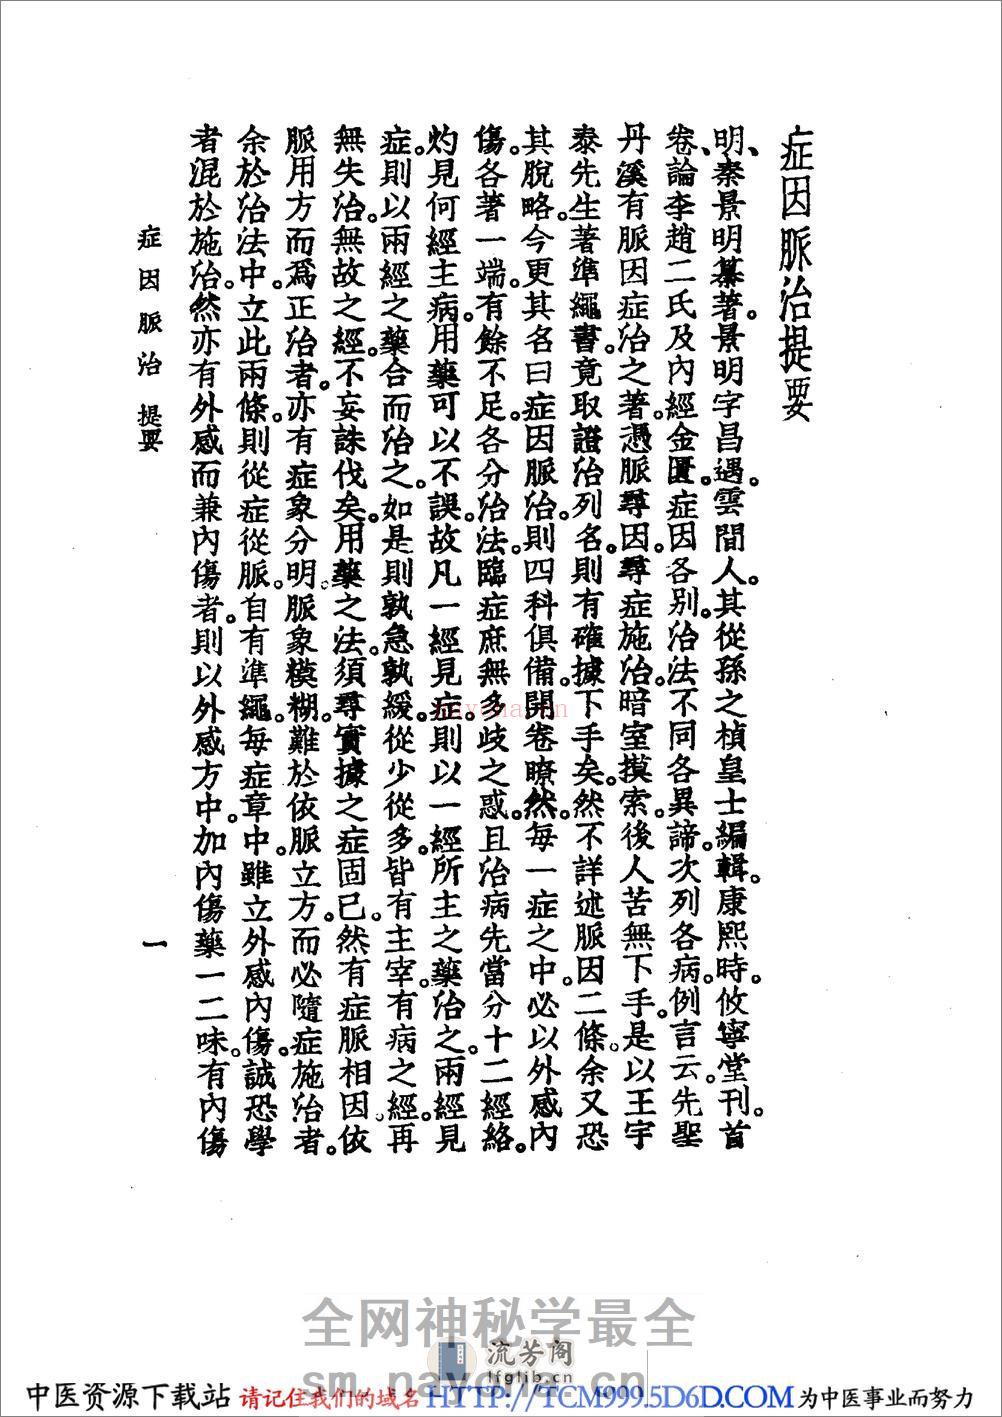 症因脈治提要
明、秦景明纂著。景明字昌遇。雲間人。其從孫之楨皇士編輯。康熙時。攸寧堂刊。首
卷、論李趙二氏及內經金匱。症因各別。治法不同各異諦。次列各病。例言云。先聖
丹溪有脈因症治之著。憑脈尋因。尋症施治。暗室摸索。後人苦無下手。是以王宇
泰先生著準繩書。竟取證治列名。則有確據下手矣。然不詳述脈因二條。余又恐
其脫略。今更其名曰症因脈治。則四科俱備。開卷瞭然。每一症之中。必以外感內
傷。各著一端。有餘不足。各分治法。臨症庶無多歧之惑。且治病先當分十二經絡。
灼見何經主病。用藥可以不誤。故凡一經見症。則以一經所主之藥治之。兩經見
症。則以兩經之藥合而治之。如是則孰急孰緩。從少從多。皆有主宰。有病之經。再
無失治。無故之經。不妄誅伐矣。用藥之法。須尋實據之症固已。然有症脈相因。依
脈用方而為正治者。亦有症象分明。脈象模糊。難於依脈立方。而必隨症施治者。
余於治法中。立此兩條。則從症從脈。自有準繩。每症章中。雖立外感內傷。誠恐學
者混於施治。然亦有外感而兼內傷者。則以外感方中。加內傷藥一二味。有內傷
症因脈治 提要
一
nayona.cn
全网神秘学最全
流芳阁
lfglib.cn
sm.nayona.cn
中医资源下载站 请记住我们的域名 HTTP://TCM999.5D6D.COM 为中医事业而努力